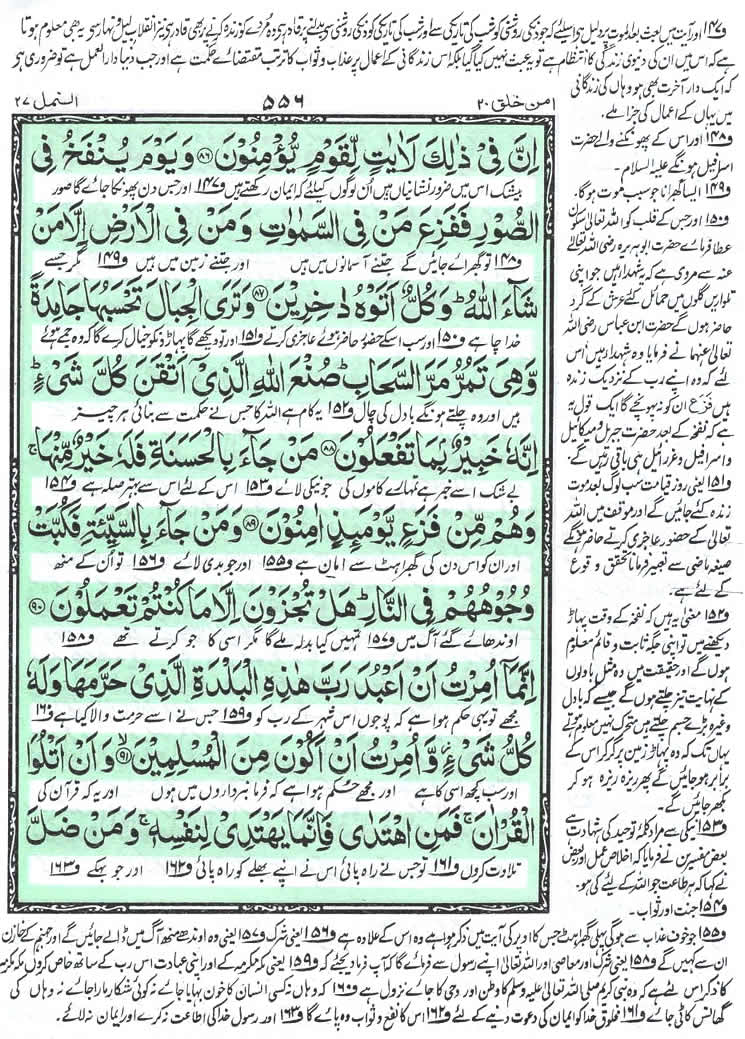 و۱۴۷ اور آیت میں بعث بعد الموت پر دلیل ہے اس لیے کہ جو دن کی روشنی کو شب کی تاریکی سے اور شب کی تاریکی کو دن کی روشنی سے بدلنے پر قادر ہے وہ مُردے کو زندہ کرنے پر بھی قادر ہے نیز انقلاب لیل و نہار سے یہ بھی معلوم ہوتا
ہے کہ اس میں ان کی دنیوی زندگی کا انتظام ہے تو یہ عبث نہیں کیا گیا بلکہ اس زندگانی کے اعمال پر عذاب و ثواب کا ترتب مقتضائے حکمت ہے اور جب دنیا دار العمل ہے تو ضروری ہے
کہ ایک دار آخرت بھی ہو وہاں کی زندگانی
میں یہاں کے اعمال کی جزا ملے۔
امن خلق ۲۰
۵۵۶
النمل ۲۷
اِنَّ فِیْ ذٰلِكَ لَاٰیٰتٍ لِّقَوْمٍ یُّؤْمِنُوْنَ ۸۶ وَ یَوْمَ یُنْفَخُ فِی
بیشک اس میں ضرور نشانیاں ہیں ان لوگوں کیلئے کہ ایمان رکھتے ہیں و۱۴۷ اور جس دن پھونکا جائے گا صور
الصُّوْرِ فَفَزِعَ مَنْ فِی السَّمٰوٰتِ وَ مَنْ فِی الْاَرْضِ اِلَّا مَنْ
و۱۴۸ تو گھبرائے جائیں گے جتنے آسمانوں میں ہیں اور جتنے زمین میں ہیں و۱۴۹ مگر جسے
شَآءَ اللّٰهُ ؕ وَ كُلٌّ اَتَوْهُ دٰخِرِیْنَ ۸۷ وَ تَرَی الْجِبَالَ تَحْسَبُهَا جَامِدَةً
خدا چاہے و۱۵۰ اور سب اسکے حضور حاضر ہوئے عاجزی کرتے و۱۵۱ اور تو دیکھے گا پہاڑوں کو خیال کرے گا کہ وہ جمے ہوئے
وَّ هِیَ تَمُرُّ مَرَّ السَّحَابِ ؕ صُنْعَ اللّٰهِ الَّذِیْۤ اَتْقَنَ كُلَّ شَیْءٍ ؕ
ہیں اور وہ چلتے ہونگے بادل کی چال و۱۵۲ یہ کام ہے اللہ کا جس نے حکمت سے بنائی ہر چیز
اِنَّهٗ خَبِیْرٌۢ بِمَا تَفْعَلُوْنَ ۸۸ مَنْ جَآءَ بِالْحَسَنَةِ فَلَهٗ خَیْرٌ مِّنْهَا ۚ
بے شک اسے خبر ہے تمہارے کاموں کی جو نیکی لائے و۱۵۳ اس کے لئے اس سے بہتر صلہ ہے و۱۵۴
وَ هُمْ مِّنْ فَزَعٍ یَّوْمَىِٕذٍ اٰمِنُوْنَ ۸۹ وَ مَنْ جَآءَ بِالسَّیِّئَةِ فَكُبَّتْ
اور ان کو اس دن کی گھبراہٹ سے امان ہے و۱۵۵ اور جو بدی لائے و۱۵۶ تو ان کے منھ
وُجُوْهُهُمْ فِی النَّارِ ؕ هَلْ تُجْزَوْنَ اِلَّا مَا كُنْتُمْ تَعْمَلُوْنَ ۹۰
اوندھائے گئے آگ میں و۱۵۷ تمہیں کیا بدلہ ملے گا مگر اسی کا جو کرتے تھے و۱۵۸
اِنَّمَاۤ اُمِرْتُ اَنْ اَعْبُدَ رَبَّ هٰذِهِ الْبَلْدَةِ الَّذِیْ حَرَّمَهَا وَ لَهٗ
مجھے تو یہی حکم ہوا ہے کہ پوجوں اس شہر کے رب کو و۱۵۹ جس نے اسے حرمت والا کیا ہے و۱۶۰
كُلُّ شَیْءٍ ؗ وَّ اُمِرْتُ اَنْ اَكُوْنَ مِنَ الْمُسْلِمِیْنَ ۹۱ وَ اَنْ اَتْلُوَا
اور سب کچھ اسی کا ہے اور مجھے حکم ہوا ہے کہ فرمانبرداروں میں ہوں اور یہ کہ قرآن کی
الْقُرْاٰنَ ۚ فَمَنِ اهْتَدٰی فَاِنَّمَا یَهْتَدِیْ لِنَفْسِهٖ ۚ وَ مَنْ ضَلَّ
تلاوت کروں و۱۶۱ تو جس نے راہ پائی اس نے اپنے بھلے کو راہ پائی و۱۶۲ اور جو بہکے و۱۶۳
و۱۴۸ اور اس کے پھونکنے والے حضرت
اسرافیل ہونگے علیہ السلام۔
و۱۴۹ ایسا گھبرانا جو سبب موت ہوگا۔
و۱۵۰ اور جس کے قلب کو اللہ تعالیٰ سکون
عطا فرمائے حضرت ابو ہریرہ رضی اللہ تعالیٰ
عنہ سے مروی ہے کہ یہ شہداء ہیں جو اپنی
تلواریں گلوں میں حمائل کئے عرش کے گرد
حاضر ہوں گے حضرت ابن عباس رضی اللہ
تعالیٰ عنہما نے فرمایا وہ شہداء ہیں اس
لئے کہ وہ اپنے رب کے نزدیک زندہ
ہیں فزع ان کو نہ پہونچے گا ایک قول یہ
ہے کہ نفخہ کے بعد حضرت جبریل و میکائیل
و اسرافیل و عزرائیل ہی باقی رہیں گے۔
و۱۵۱ یعنی روز قیامت سب لوگ بعد موت
زندہ کئے جائیں گے اور موقف میں اللہ
تعالیٰ کے حضور عاجزی کرتے حاضر ہونگے
صیغہ ماضی سے تعبیر فرمانا تحقق و وقوع
کے لئے ہے۔
و۱۵۲ معنی یہ ہیں کہ نفخہ کے وقت پہاڑ
دیکھنے میں تو اپنی جگہ ثابت و قائم معلوم
ہوں گے اور حقیقت میں وہ مثل بادلوں
کے نہایت تیز چلتے ہوں گے جیسے کہ بادل
وغیرہ بڑے جسم چلتے ہیں متحرک نہیں معلوم ہوتے
یہاں تک کہ وہ پہاڑ زمین پر گر کر اس کے
برابر ہو جائیں گے پھر ریزہ ریزہ ہو کر
بکھر جائیں گے۔
و۱۵۳ نیکی سے مراد کلمۂ توحید کی شہادت ہے
بعض مفسرین نے فرمایا کہ اخلاص عمل اور بعض
نے کہا کہ ہر طاعت جو اللہ کے لئے کی ہو۔
و۱۵۴ جنت اور ثواب۔
و۱۵۵ جو خوف عذاب سے ہوگی پہلی گھبراہٹ جس کا اوپر کی آیت میں ذکر ہوا ہے وہ اس کے علاوہ ہے و۱۵۶ یعنی شرک و۱۵۷ یعنی وہ اوندھے منھ آگ میں ڈالے جائیں گے اور جہنم کے خازن
ان سے کہیں گے و۱۵۸ یعنی شرک اور معاصی اور اللہ تعالیٰ اپنے رسول سے فرمائے گا کہ آپ فرما دیجئے کہ و۱۵۹ یعنی مکہ مکرمہ کے اور اپنی عبادت اس رب کے ساتھ خاص کروں مکہ مکرمہ
کا ذکر اس لئے ہے کہ وہ نبی کریم صلی اللہ تعالیٰ علیہ وسلم کا وطن اور وحی کا جائے نزول ہے و۱۶۰ کہ وہاں نہ کسی انسان کا خون بہایا جائے نہ کوئی شکار مارا جائے نہ وہاں کی
گھانس کاٹی جائے و۱۶۱ مخلوق خدا کو ایمان کی دعوت دینے کے لئے و۱۶۲ اس کا نفع و ثواب وہ پائے گا و۱۶۳ اور رسول خدا کی اطاعت نہ کرے اور ایمان نہ لائے۔